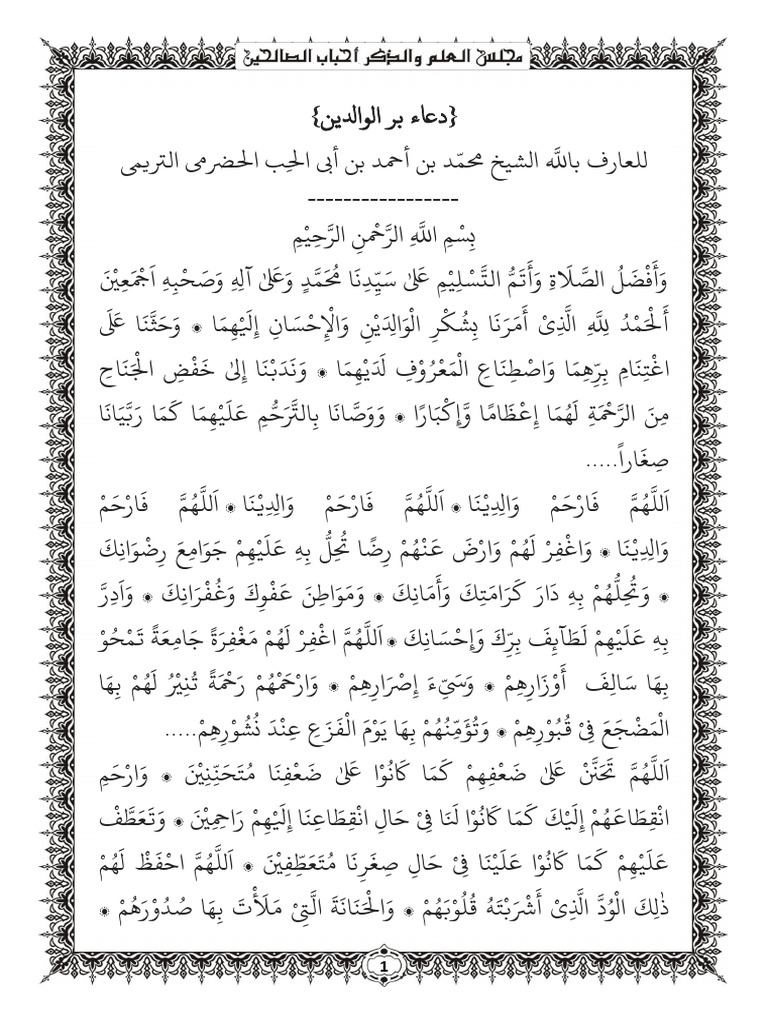 مجلس العلم والذكر أحباب الصالحين
{دعاء بر الوالدين}
للعارف بالله الشيخ محمّد بن أحمد بن أبى الحِب الحضرمى التريمى
-----------------
بِسْمِ اللَّهِ الرَّحْمنِ الرَّحِيْمِ
وَأَفْضَلُ الصَّلَاةِ وَأَتَمُّ التَّسْلِيْمِ عَلىٰ سَيِّدِنَا مُحَمَّدٍ وَعَلىٰ آلِهِ وَصَحْبِهِ اَجْمَعِيْنَ
أَلْحَمْدُ لِلَّهِ الَّذِىْ أَمَرَنَا بِشُكْرِ الْوَالِدَيْنِ وَالْإِحْسَانِ إِلَيْهِمَا * وَحَثَّنَا عَلَى
اغْتِنَامِ بِرِّهِمَا وَاصْطِنَاعِ الْمَعْرُوْفِ لَدَيْهِمَا * وَنَدَبْنَا إِلىٰ خَفْضِ الْجَنَاحِ
مِنَ الرَّحْمَةِ لَهُمَا إِعْظَامًا وَّإِكْبَارًا * وَوَصَّانَا بِالتَّرَحُّمِ عَلَيْهِمَا كَمَا رَبَّيَانَا
صِغَاراً.....
اَللَّهُمَّ فَارْحَمْ وَالِدِيْنَا * اَللَّهُمَّ فَارْحَمْ وَالِدِيْنَا * اَللَّهُمَّ فَارْحَمْ
وَالِدِيْنَا * وَاغْفِرْ لَهُمْ وَارْضَ عَنْهُمْ رِضًا تُحِلُّ بِهِ عَلَيْهِمْ جَوَامِعَ رِضْوَانِكَ
* وَتُحِلُّهُمْ بِهِ دَارَ كَرَامَتِكَ وَأَمَانِكَ * وَمَوَاطِنَ عَفْوِكَ وَغُفْرَانِكَ * وَاَدِرَّ
بِهِ عَلَيْهِمْ لَطَآئِفَ بِرِّكَ وَإِحْسَانِكَ * اَللَّهُمَّ اغْفِرْ لَهُمْ مَغْفِرَةً جَامِعَةً تَمْحُوْ
بِهَا سَالِفَ أَوْزَارِهِمْ * وَسَيِّءَ إِصْرَارِهِمْ * وَارْحَمْهُمْ رَحْمَةً تُنِيْرُ لَهُمْ بِهَا
الْمَضْجَعَ فِىْ قُبُوْرِهِمْ * وَتُؤَمِّنُهُمْ بِهَا يَوْمَ الْفَزَعِ عِنْدَ نُشُوْرِهِمْ.....
اَللَّهُمَّ تَحَنَّنْ عَلىٰ ضَعْفِهِمْ كَمَا كَانُوْا عَلىٰ ضَعْفِنَا مُتَحَنِّنِيْنَ * وَارْحَمِ
انْقِطَاعَهُمْ إِلَيْكَ كَمَا كَانُوْا لَنَا فِىْ حَالِ انْقِطَاعِنَا إِلَيْهِمْ رَاحِمِيْنَ * وَتَعَطَّفْ
عَلَيْهِمْ كَمَا كَانُوْا عَلَيْنَا فِىْ حَالِ صِغَرِنَا مُتَعَطِّفِيْنَ * اَللَّهُمَّ احْفَظْ لَهُمْ
ذٰلِكَ الْوُدَّ الَّذِىْ أَشْرَبْتَهُ قُلُوْبَهُمْ * وَالْحَنَانَةَ الَّتِىْ مَلَأْتَ بِهَا صُدُوْرَهُمْ *
1